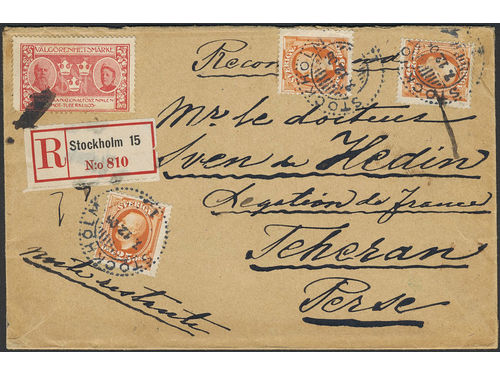 VÄLGÖRENHETSMÄRKE
Recommand
R Stockholm 15
N:o 810
SVERIGE
STOCKHOLM
Mr le docteur
Sven de Hedin
Légation de France
Teheran
Perse
poste restante